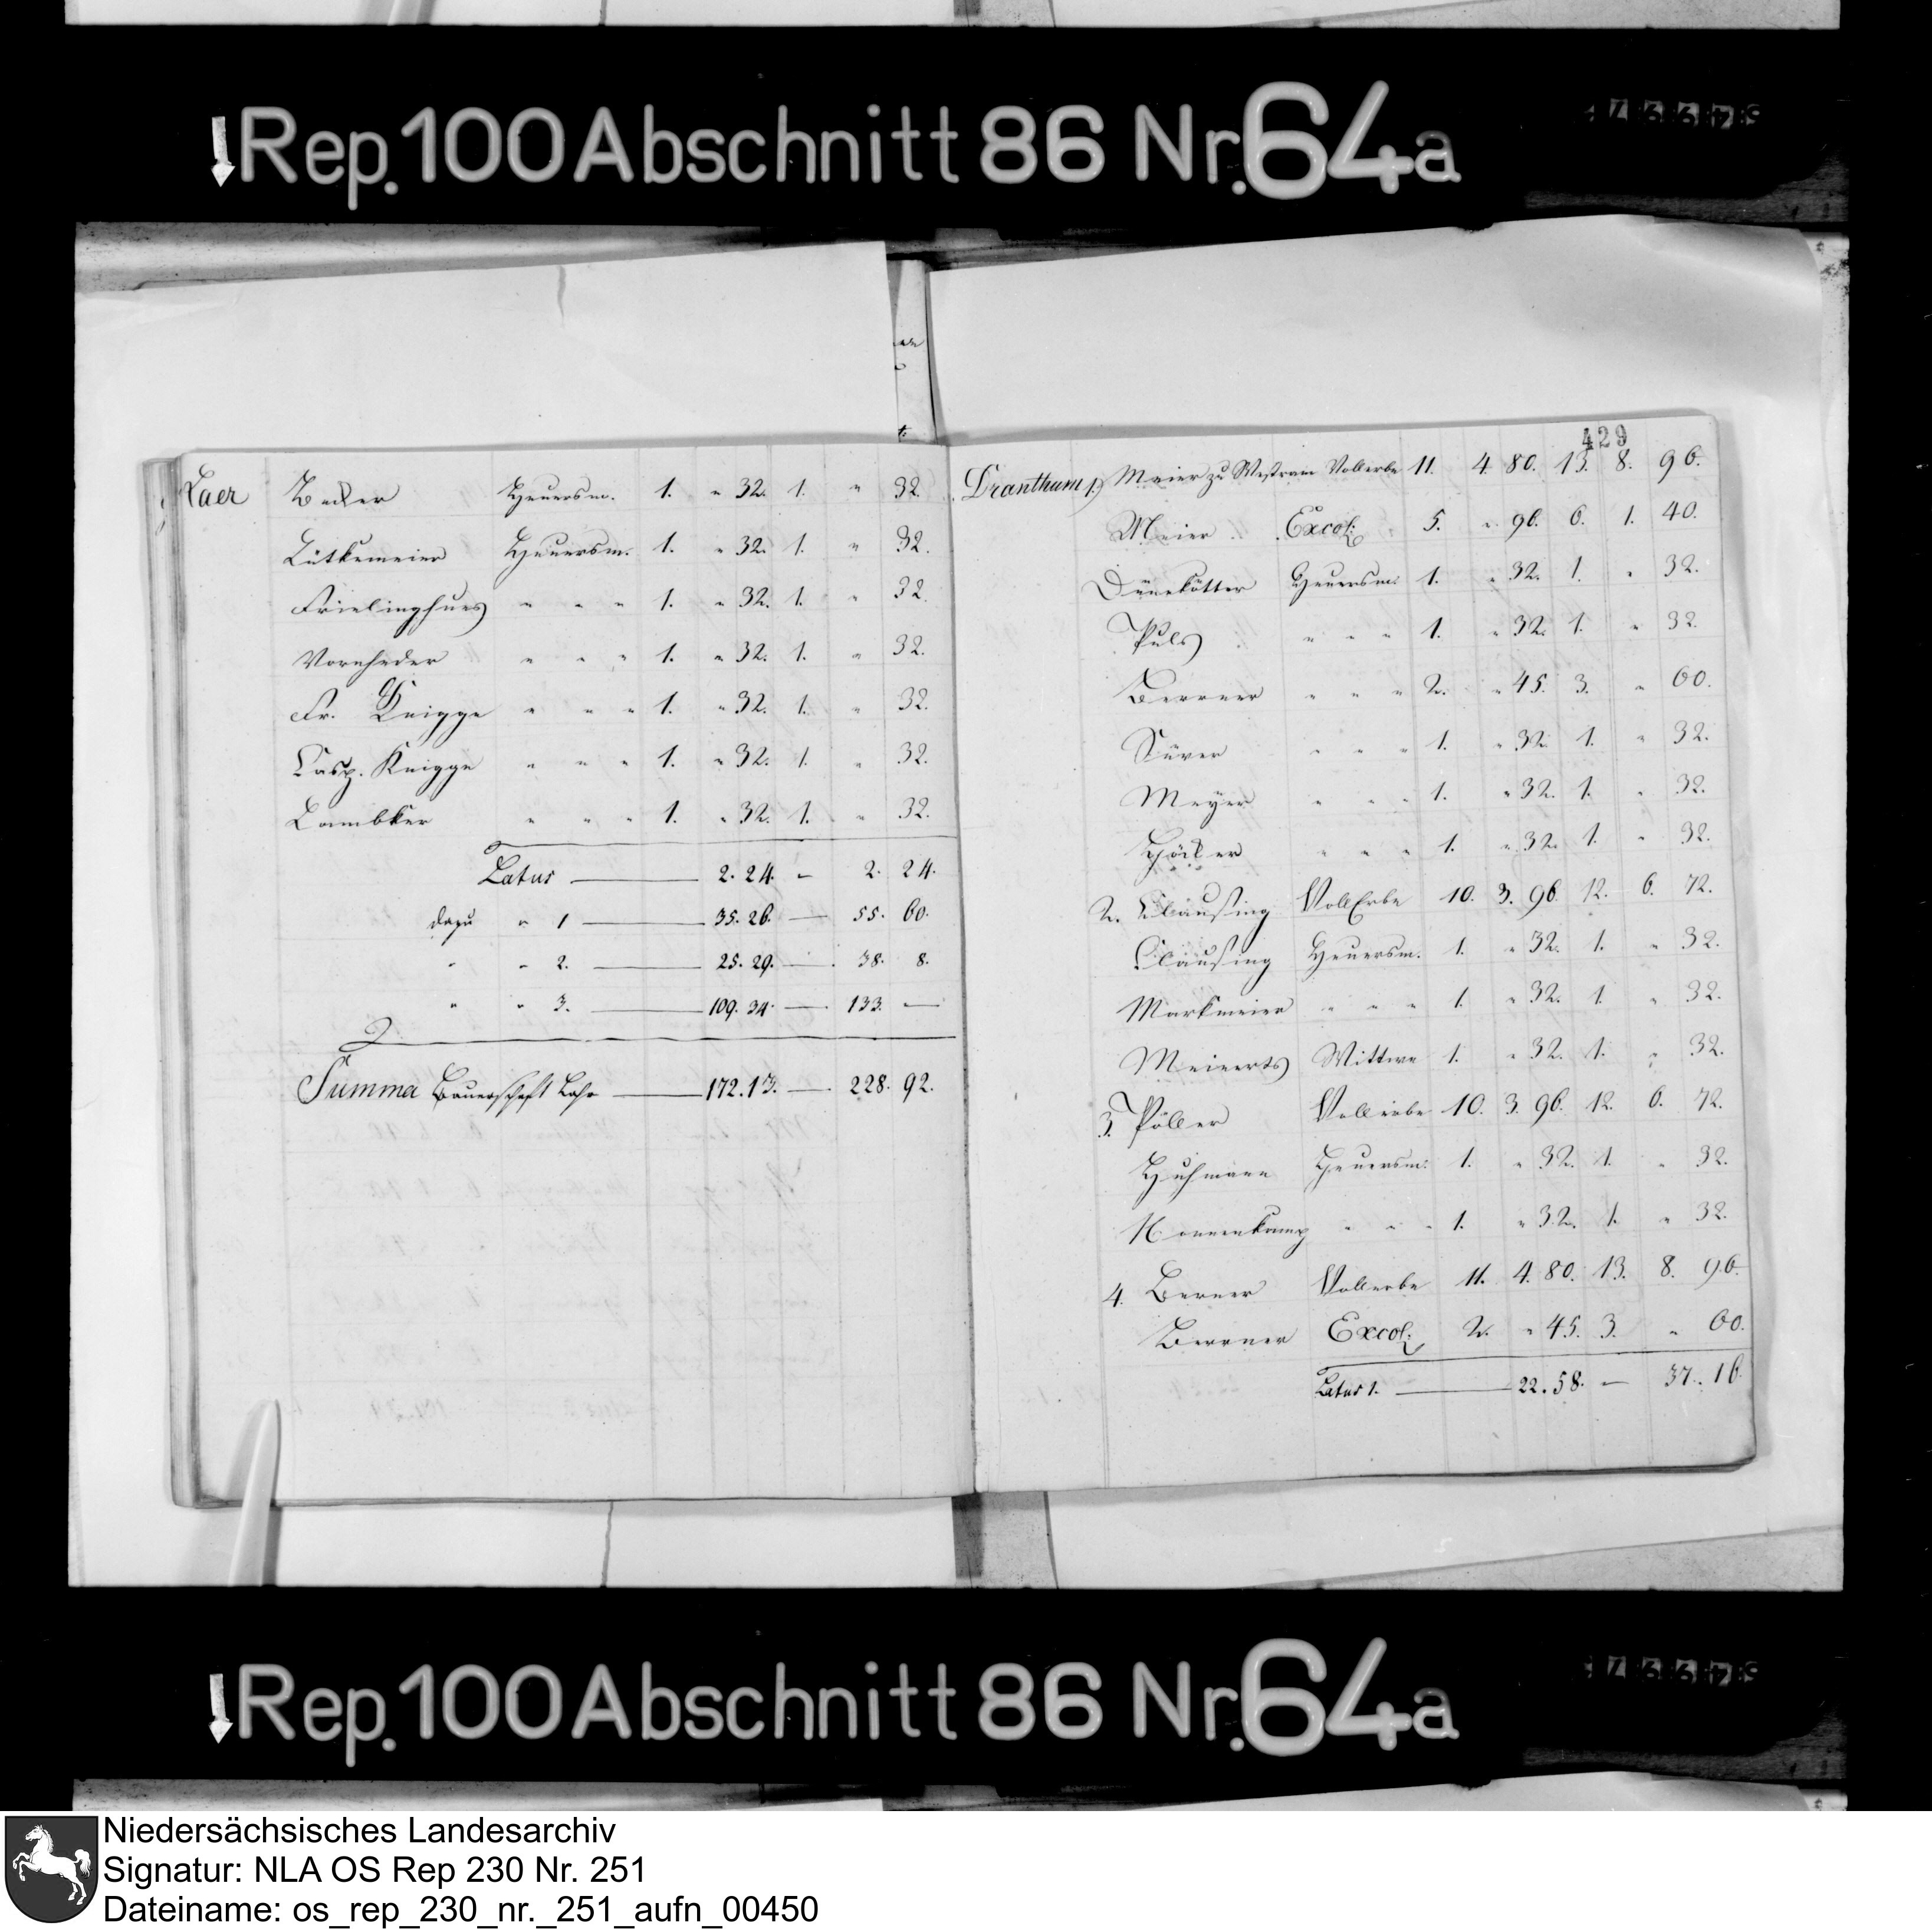 Rep. 100 Abschnitt 86 Nr. 64a
Laer Becker Heuersm. 1. " 32. 1. " 32.
Lütkemeier Heuersm. 1. " 32. 1. " 32.
Frielinghues " " " 1. " 32. 1. " 32.
Vornheder " " " 1. " 32. 1. " 32.
Fr. Knigge " " " 1. " 32. 1. " 32.
Casp. Knigge " " " 1. " 32. 1. " 32.
Lambker " " " 1. " 32. 1. " 32.
Latus — 2. 24. — 2. 24.
dazu " 1 — 35. 26. — 55. 60.
" " 2. — 25. 29. — 38. 8.
" " 3. — 109. 34. — 133. —
Summa Bauerschaft Lahr — 172. 13. — 228. 92.
429
Dranthum 1.) Meier zu Westram Vollerbe 11. 4. 80. 13. 8. 96.
Meier Excol: 5. " 96. 6. 1. 40.
Dünekötter Heuersm: 1. " 32. 1. " 32.
Puls " " " 1. " 32. 1. " 32.
Berner " " " 2. " 45. 3. " 60.
Süver " " " 1. " 32. 1. " 32.
Meyer " " " 1. " 32. 1. " 32.
Höcker " " " 1. " 32. 1. " 32.
2. Clausing VollErbe 10. 3. 96. 12. 6. 72.
Clausing Heuersm. 1. " 32. 1. " 32.
Markmeier " " " 1. " 32. 1. " 32.
Meinerts Wittwe 1. " 32. 1. " 32.
3. Pöller Vollerbe 10. 3. 96. 12. 6. 72.
Huhmann Heuersm: 1. " 32. 1. " 32.
Nonnenkamp " " " 1. " 32. 1. " 32.
4. Berner Vollerbe 11. 4. 80. 13. 8. 96.
Berner Excol: 2. " 45. 3. " 60.
Latus 1. — 22. 58. — 37. 16.
Rep. 100 Abschnitt 86 Nr. 64a
Niedersächsisches Landesarchiv
Signatur: NLA OS Rep 230 Nr. 251
Dateiname: os_rep_230_nr._251_aufn_00450